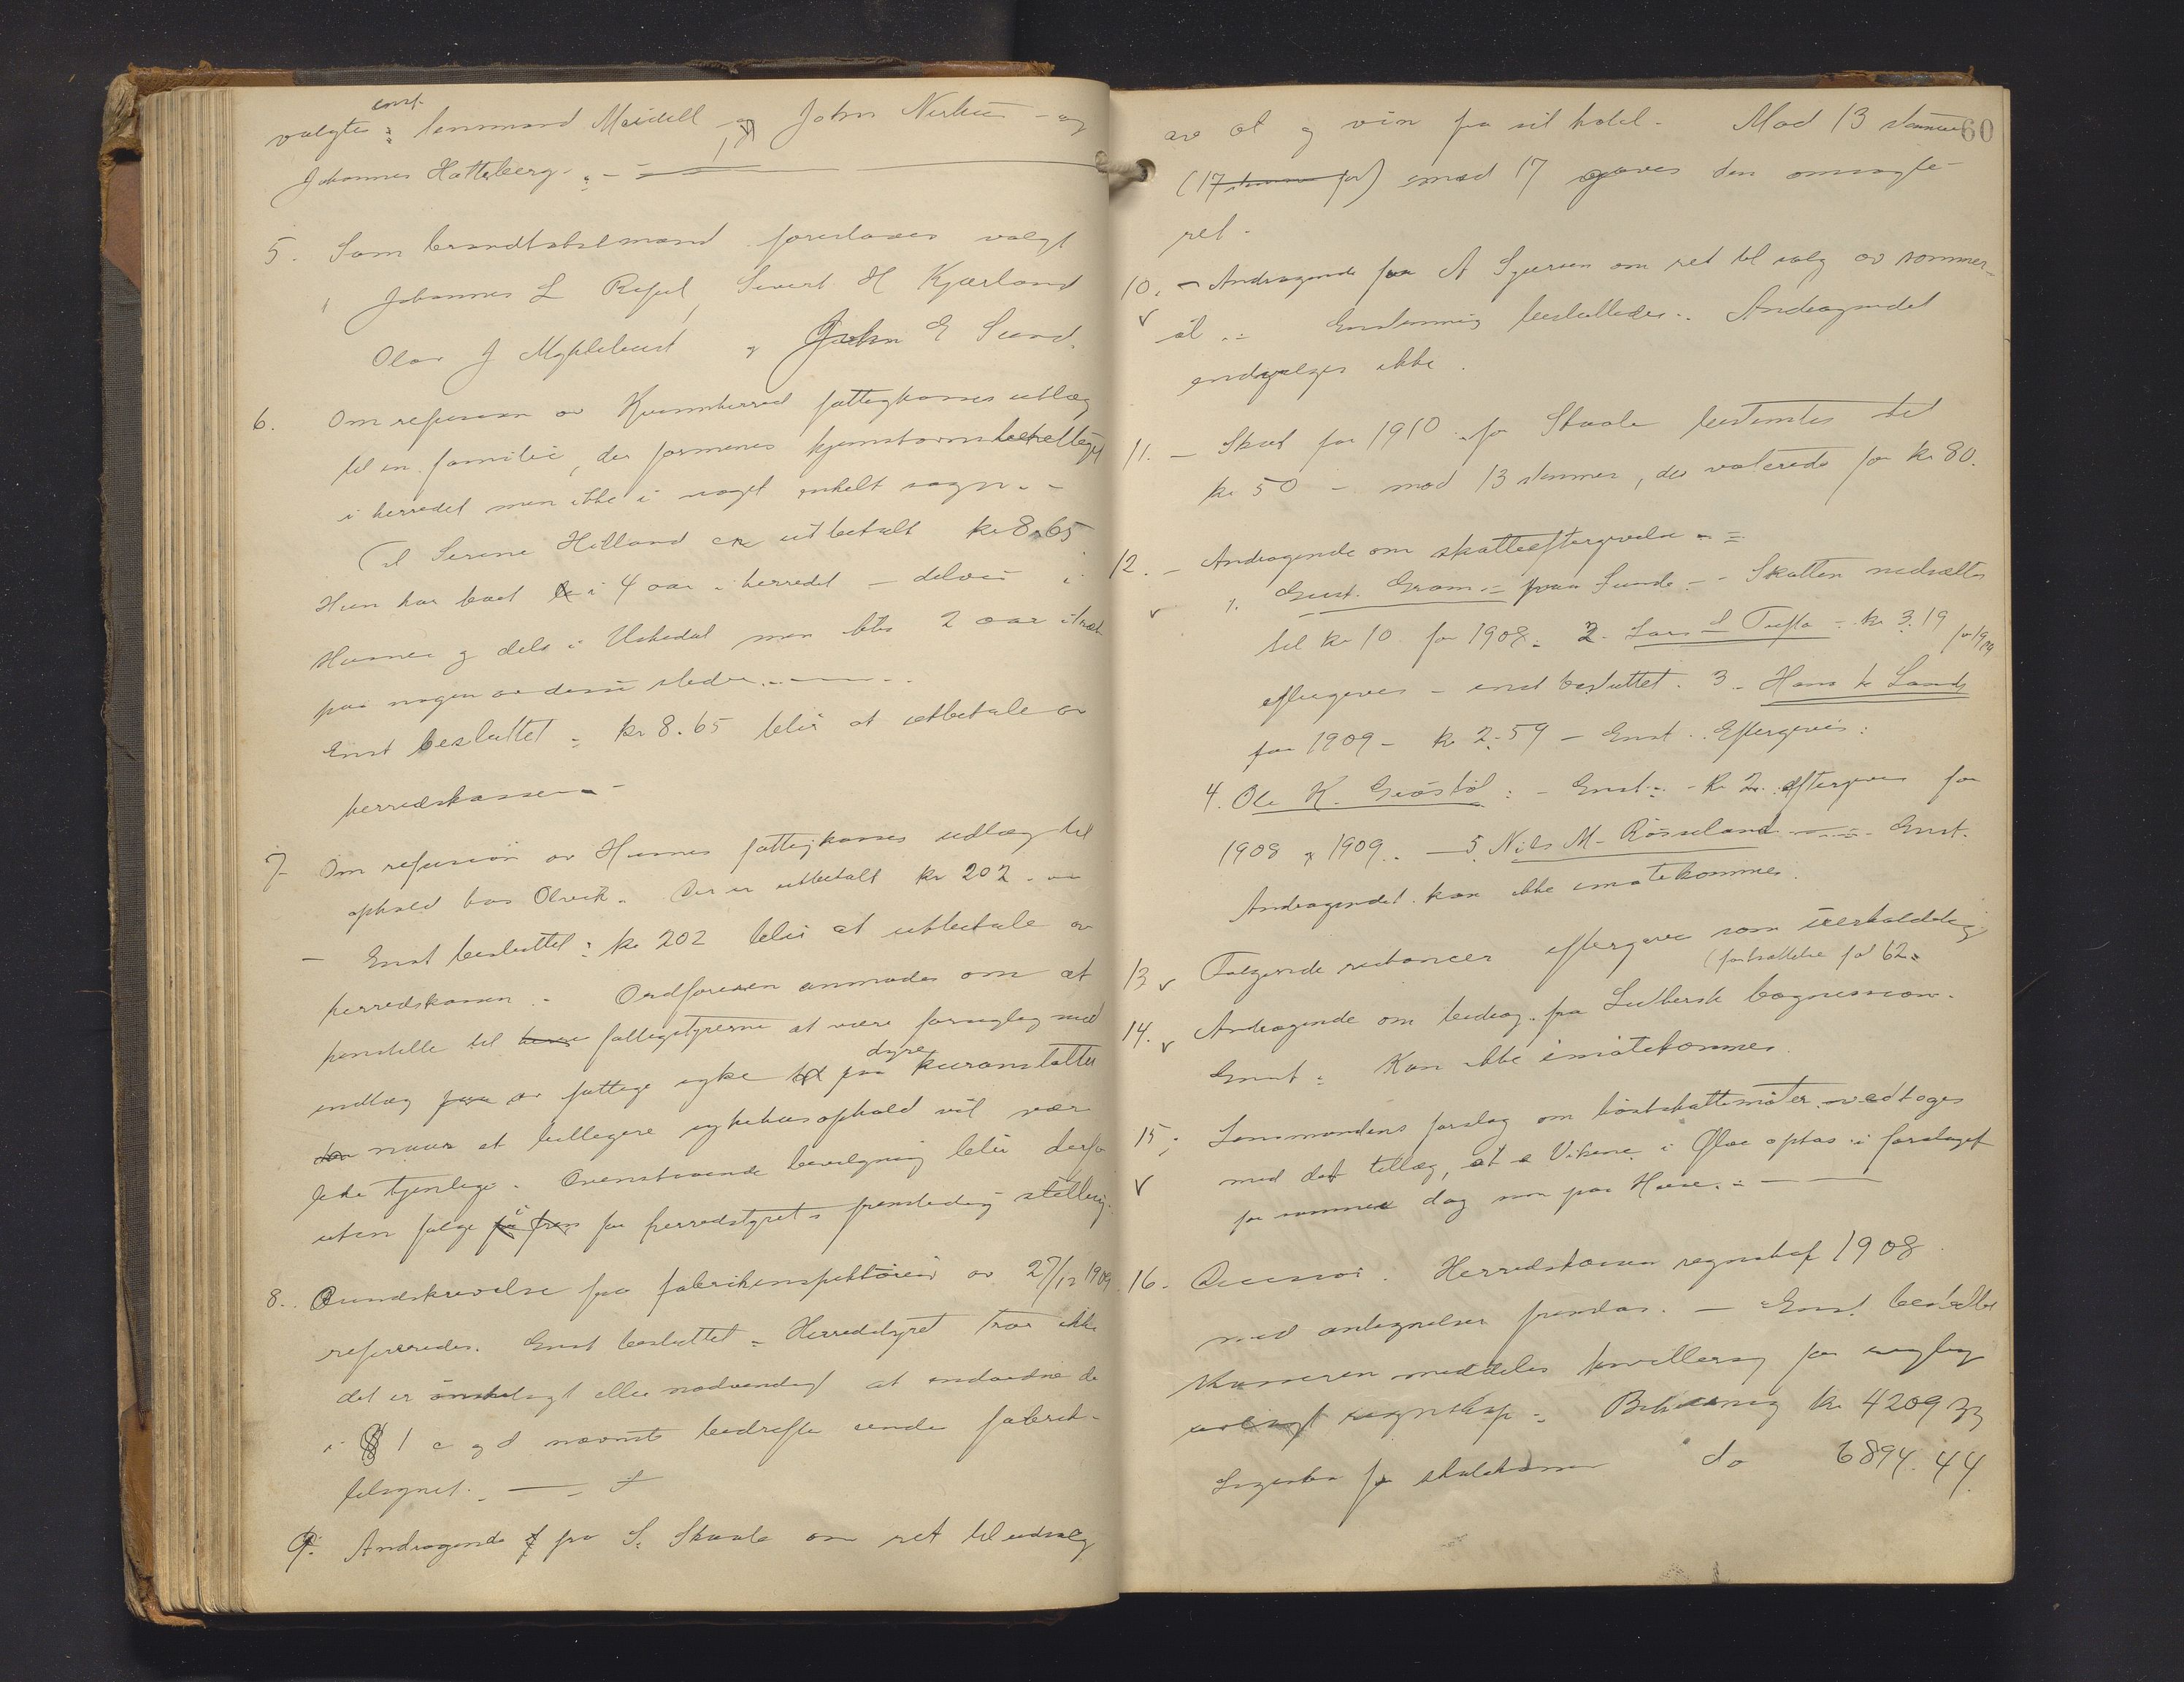 enst
valgtes: lensmand Maidell og John Nerhus - og
Johannes Hatteberg. -
5. Som brandtakstmænd foresloges valgt
Johannes L Røssel, Sivert H Kjærland
Olav J Myklebust og John E Sund.
6. Om refusion av Kvinnherred fattigkasses utlæg
til en familie, der formenes hjemstavnsberettiget
i herredet men ikke i noget enkelt sogn. -
Til Serine Helland er utbetalt kr 8.65
Hun har boet i 4 aar i herredet - delvis i
Husnes og dels i Uskedal men ikke 2 aar i træk
paa nogen av disse steder. -
Enst besluttet: kr 8.65 blir at utbetale av
herredskassen. -
7. Om refusion av Husnes fattigkasses udlæg til
ophold hos Olvik. Der er utbetalt kr 202. -
- Enst besluttet: kr 202 blir at utbetale av
herredskassen. - Ordføreren anmodes om at
henstille til fattigstyrerne at være forsigtig med
indlæg av fattige syke paa dyre kuranstalter
naar et billigere sykehusophold vil være
like tjenlige. Ovenstaaende bevilgning blir derfor
uten følge for herredstyrets fremtidig stilling.
8. Rundskrivelse fra fabrikinspektøren av 27/12 1909
refereredes. Enst besluttet: Herredstyret tror ikke
det er ønskeligt eller nødvendigt at indordne de
i § 1 c og d nævnte bedrifter under fabrik-
tilsynet. -
9. Andragende fra S. Skaale om ret til udsalg
60
av øl og vin fra sit hotel. Mod 13 stemmer
(17 stemmer for) mod 17 gaves den omsøgte
ret.
10. - Andragende fra A Sjursen om ret til salg av sommer-
øl. - Enstemmig besluttedes: Andragendet
indvilges ikke.
11. - Skat for 1910 for Skaale bestemtes til
kr 50 - mod 13 stemmer, der voterede for kr 80.
12. - Andragende om skatteeftergivelse -
1. Gust. Gram - paa Sunde - Skatten nedsættes
til kr 10 for 1908. 2. Lars L Tufta - kr 3.19 for 1909
eftergives - enst besluttet. 3. Hans K Lande
for 1909 - kr 2.59 - Enst. Eftergives:
4. Ole K. Gråstöl: - Enst: - kr 2. eftergives for
1908 og 1909. - 5. Nils M. Rösseland - Enst.
Andragendet kan ikke imøtekommes.
13 Følgende restancer eftergives som uerholdelig
(fortsættelse fol 62.
14. Andragende om bidrag fra Luthersk
Enst: Kan ikke imøtekommes.
15. Lensmandens forslag om höstskattemøter vedtoges
med det tillæg, at Vikene i Ølve optas i forslaget
for samme dag som paa Huse. -
16. Decision. Herredskassen regnskap 1908
med antegnelser fremlas. - Enst besluttet
Kasseren meddeles kvittering for
avlagt regnskap: Beholdning kr 4209 33
Ligesaa for skolekassen do 6894.44